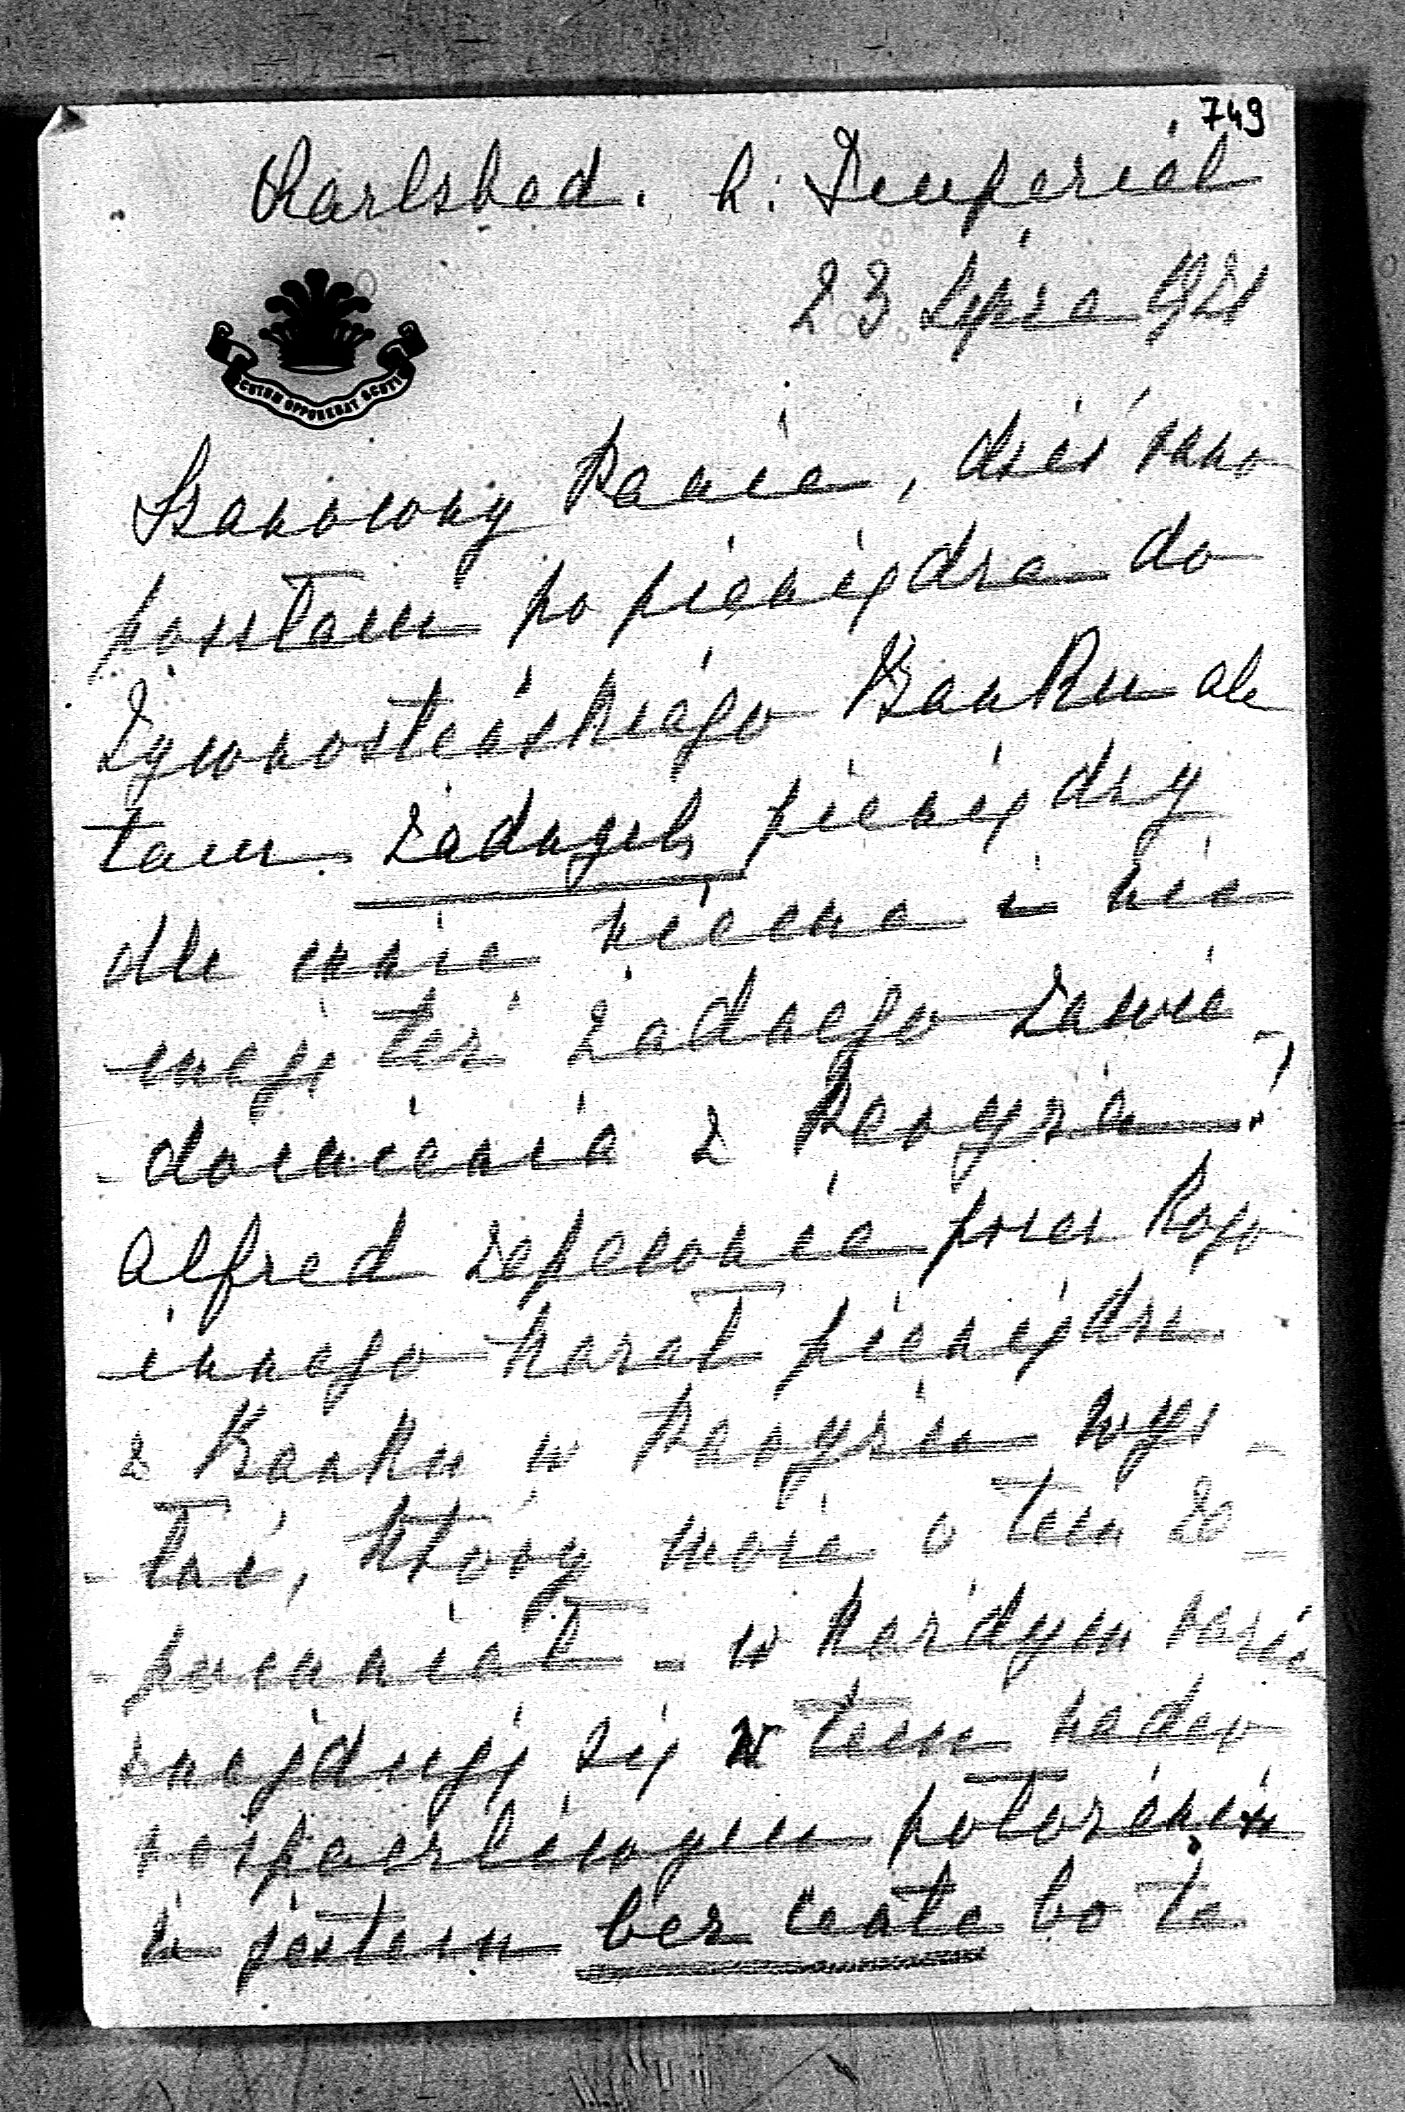 749
Karlsbad. h: Imperial
23 Lipca 1921
SCUTUM OPPONEBAT SCUTIS
Szanowny Panie, dziś rano
poszłam po pieniądze do
Żywnosteńskiego Banku ale
tam żadnych pieniędzy
dla mnie niema i nie
mają też żadnego zawia-
-domienia z Pragi;
Alfred zapewnie przez kogo
innego kazał pieniądze
z Banku w Pradze wys-
-łać, który może o tem za-
-pomniał - w każdym razie
znajduję się w tem nader
nieszczęśliwym położeniu
że jestem bez centa bo ta